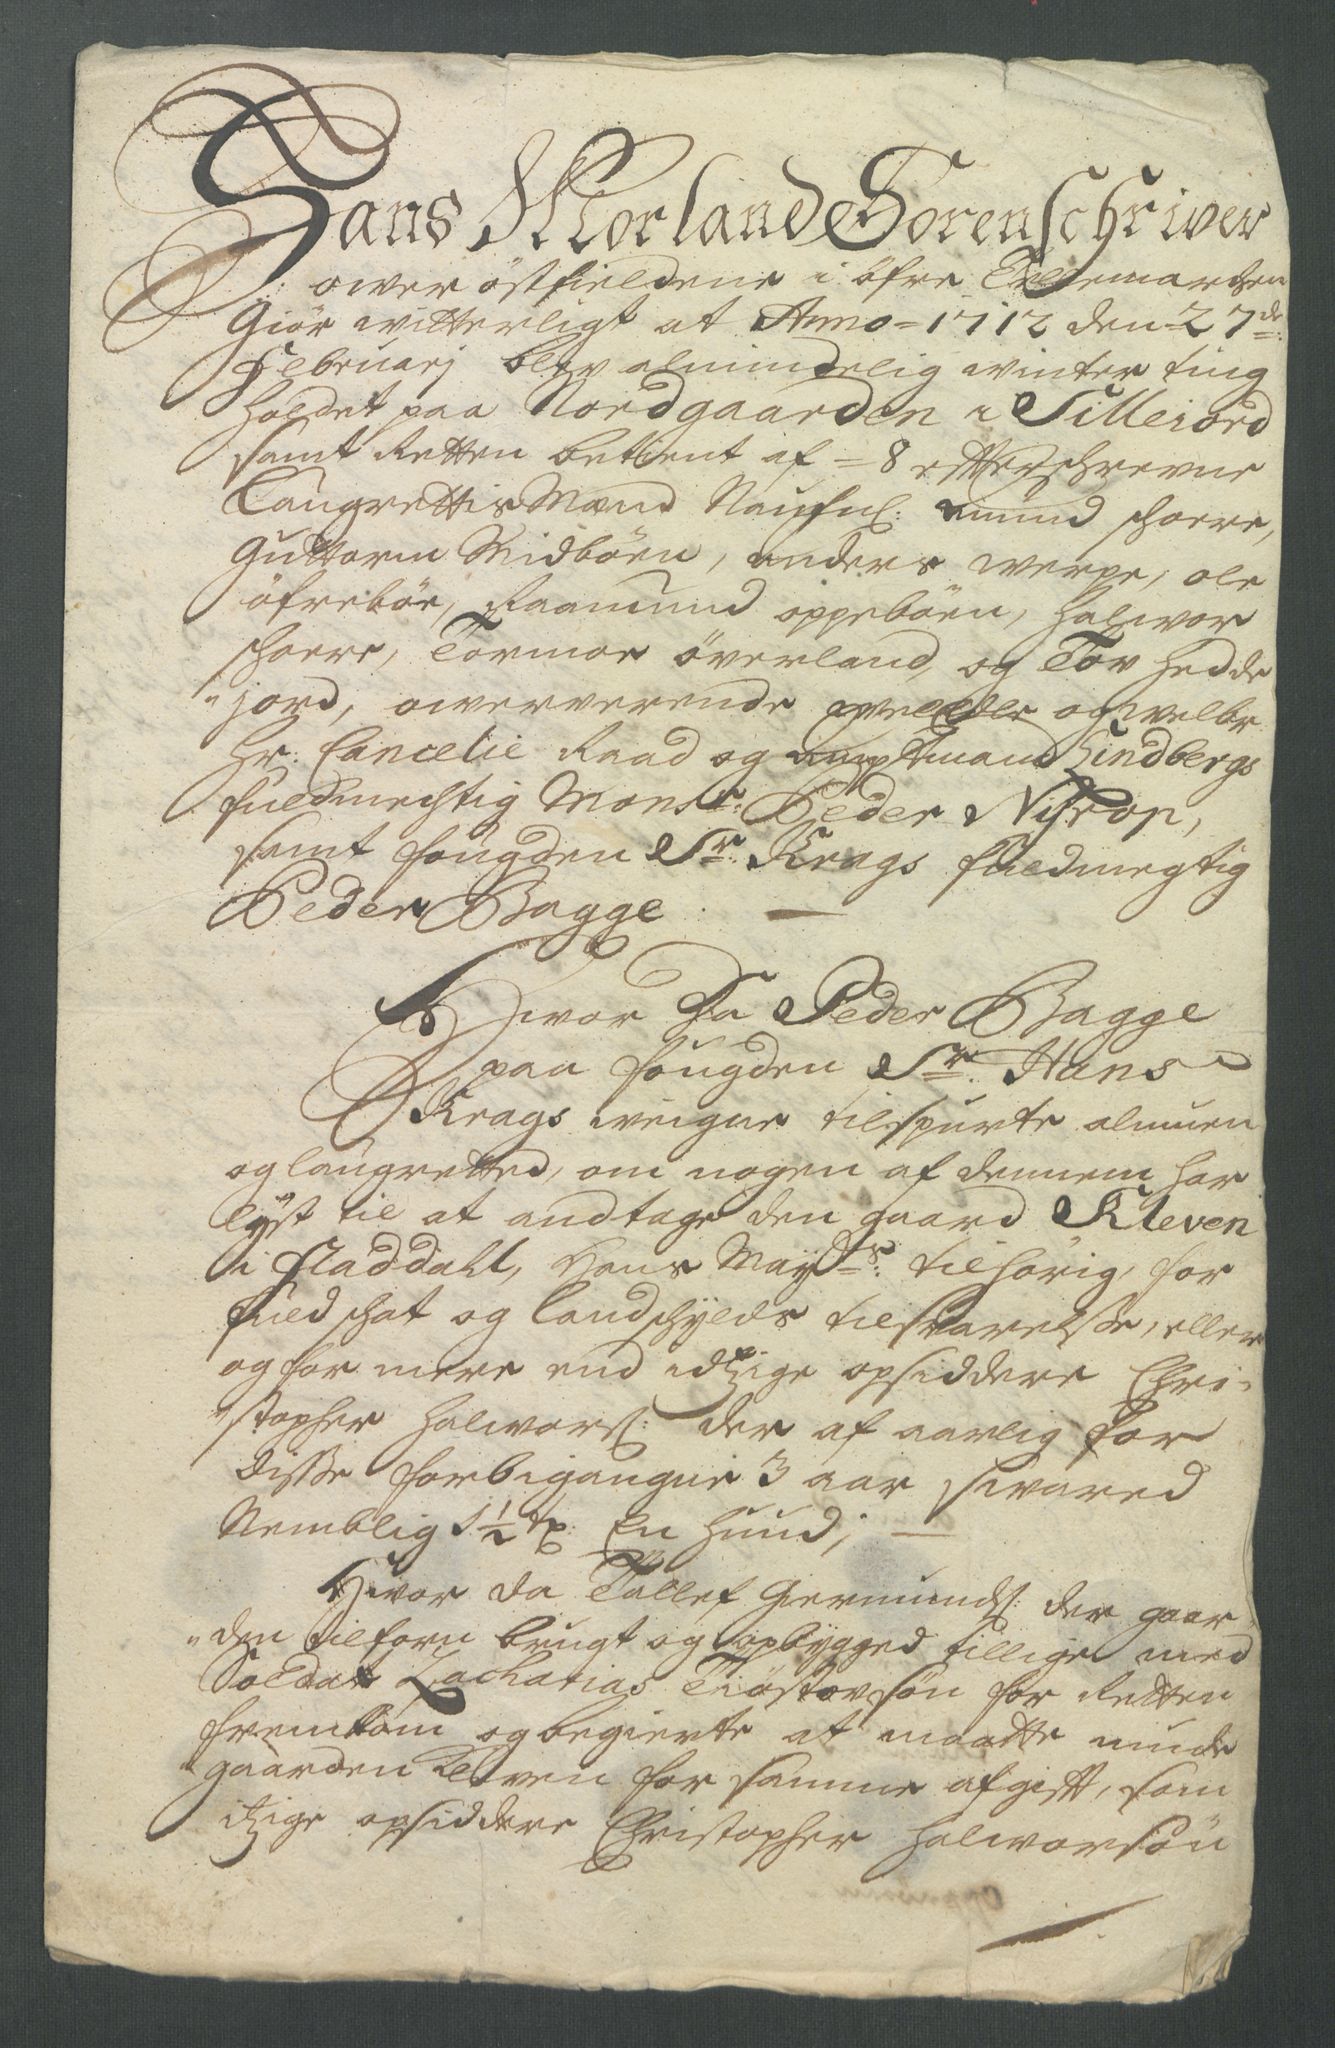 Hans Morland Sorenschriver
ower östfieldene i öfre Tellemarchen
Giör witterligt at Anno = 1712 den 27de:
Februarj blev almindelig winter ting
holdet paa Nordgaarden i Silleiord
samt Retten betient af = 8 efterschrevne
Laugrettis Mænd Naufnl: Amund schorre,
Guttorm Midböen, anders werpe, ole
öfreböe, Raamund oppeböen, Halwor
schorre, Tormoe överland, og Tov Hedde
jord, owerverende og velbr
Hr: Cancelie Raad og amptmand Lindbergs
fuldmechtig Monsr: Peder Nyrop,
samt fougden Sr: Krags fuldmegtig
Peder Bagge. —
Hwor da Peder Bagge
paa fougden Sr. Hans
Krags weigne tilspurte almuen
og laugretted, om nogen af dennem har
lÿst til at andtage den gaard Kleven
i Fladdall, Hans Maÿts: tilhörig, for
fuld schat og landschÿlds tilsvarelsse, eller
og for mere end idtzige opsiddere Chri-
stopher Halwors: der af aarlig for
disse forbigangne 3 aar swared
Nemblig 1½ En huud; —
Hwor da Tallef Giermunds: der gaar-
den tilforn brugt og opbÿgged tillige med
Soldat Zacharias Tiöstovsön for Retten
fremkom og begierte at maatte nÿde
gaarden Kleven for samme afgift, som
itzige opsiddere Christopher Halworsön